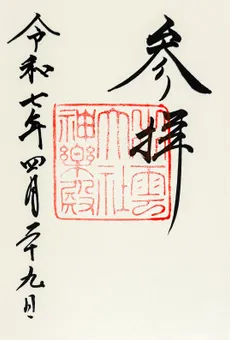 参拝
出雲
大社
神樂殿
令和七年四月二十九日